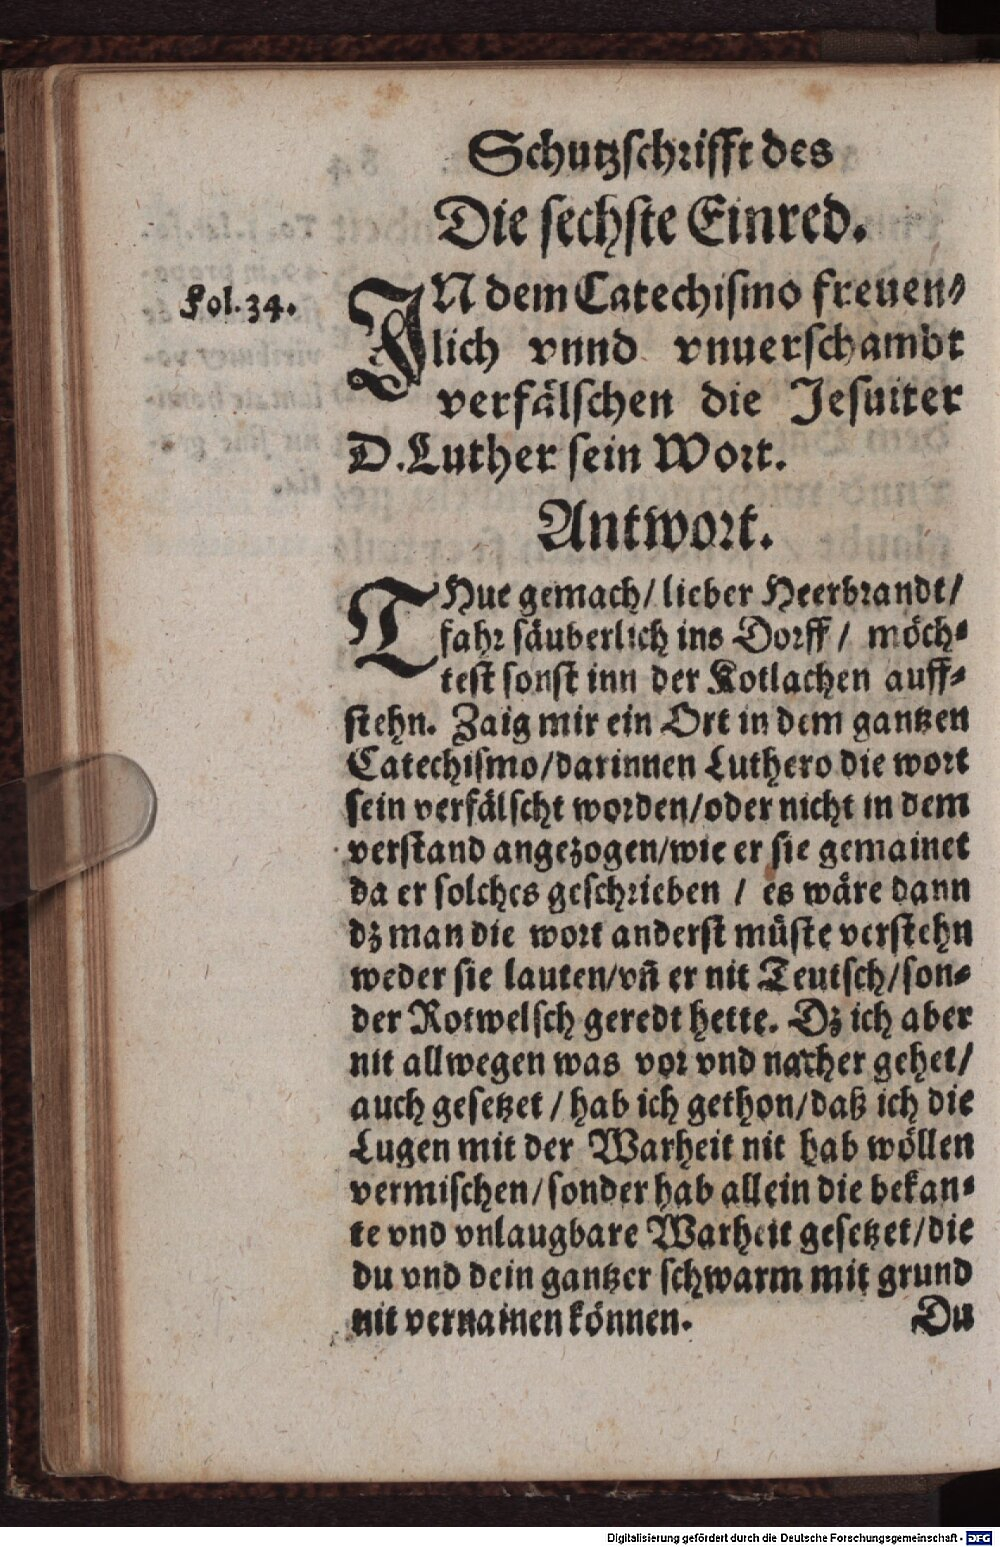 Schutzschrifft des
Die sechste Einred.
Fol. 34.
IN dem Catechismo freuen-
lich vnnd vnuerschambt
verfälschen die Jesuiter
D. Luther sein Wort.
Antwort.
THue gemach/ lieber Heerbrandt/
fahr säuberlich ins Dorff/ möch-
test sonst inn der Kotlachen auff-
stehn. Zaig mir ein Ort in dem gantzen
Catechismo/ darinnen Luthero die wort
sein verfälscht worden/ oder nicht in dem
verstand angezogen/ wie er sie gemainet
da er solches geschrieben / es wäre dann
dz man die wort anderst müste verstehn
weder sie lauten/ vñ er nit Teutsch/ son-
der Rotwelsch geredt hette. Dz ich aber
nit allwegen was vor vnd nacher gehet/
auch gesetzet / hab ich gethon/ daß ich die
Lugen mit der Warheit nit hab wöllen
vermischen/ sonder hab allein die bekan-
te vnd vnlaugbare Warheit gesetzet/ die
du vnd dein gantzer schwarm mit grund
nit vernainen können.
Du
Digitalisierung gefördert durch die Deutsche Forschungsgemeinschaft - DFG